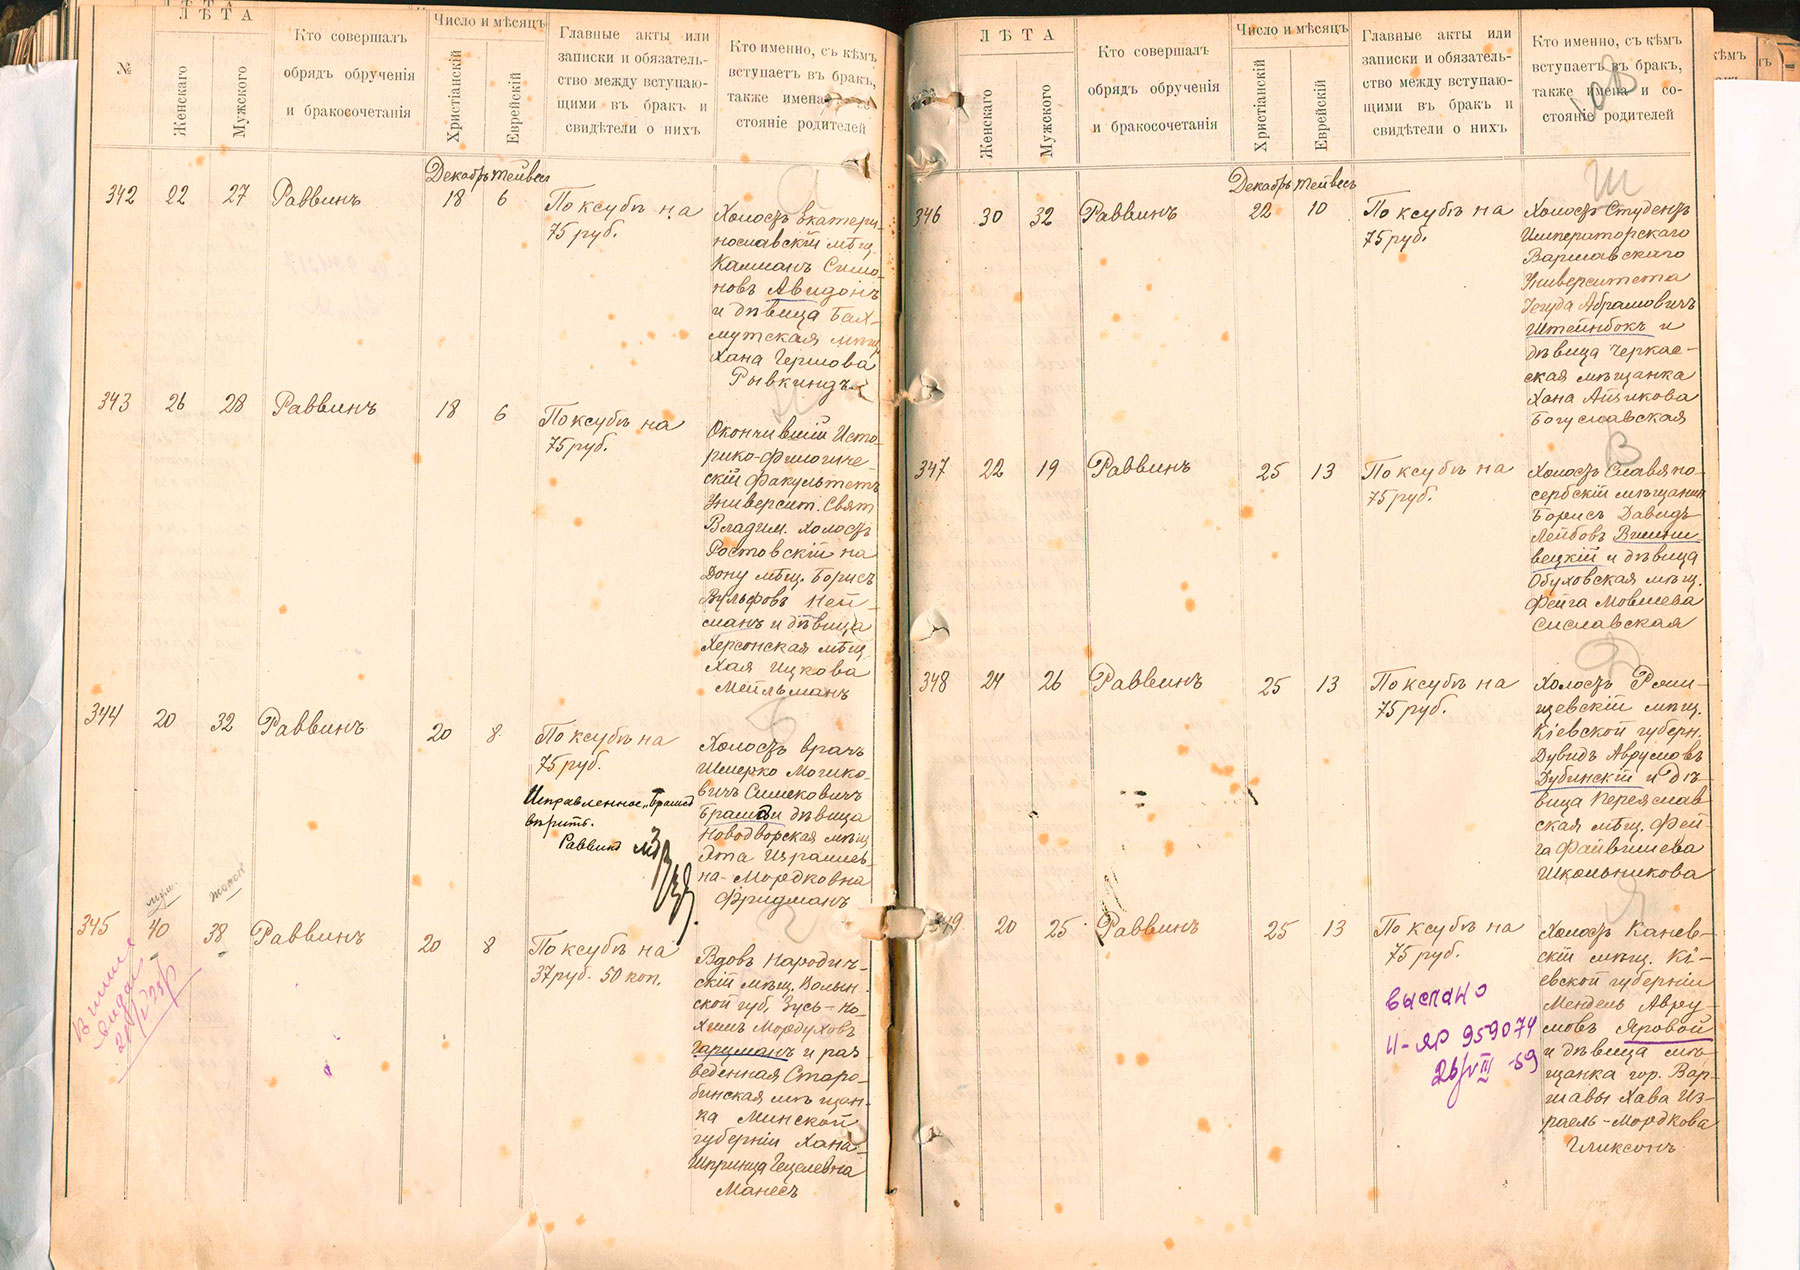 ЛѢТА
№
Женскаго
Мужского
Кто совершалъ
обрядъ обрученія
и бракосочетанія
Число и мѣсяцъ
Христіанскій
Еврейскій
Главные акты или
записки и обязатель-
ство между вступаю-
щими въ бракъ и
свидѣтели о нихъ
Кто именно, съ кѣмъ
вступаетъ въ бракъ,
также имена
стояніе родителей
Декабрь Тейвесъ
342 22 27 Раввинъ 18 6
По ксубѣ на
75 руб.
Холостъ Екатери-
нославскій мѣщ.
Калманъ Симо-
новъ Авидонъ
и дѣвица Бах-
мутская мѣщ.
Хана Гершова
Рывкиндъ
343 26 28 Раввинъ 18 6
По ксубѣ на
75 руб.
Окончившій Исто-
рико-Филогиче-
скій Факультетъ
Университ. Свят
Владим. холостъ
Ростовскій на
Дону мѣщ. Борисъ
Вульфовъ Ней-
манъ и дѣвица
Херсонская мѣщ.
Хая Ицкова
Мейльманъ
344 20 32 Раввинъ 20 8
По ксубѣ на
75 руб.
Исправленное
вѣрить.
Раввинъ
Холостъ врачъ
Шмерко
вичъ Симковичъ
и дѣвица
Новодворская мѣщ
Эта Израилев-
на-Мордковна
Фридманъ
345 40 38 Раввинъ 20 8
По ксубѣ на
37 руб. 50 коп.
Вдовъ Народич-
скій мѣщ. Волын-
ской губ. Зусь-Но-
химъ Мордуховъ
Гарцманъ и раз
веденная Старо-
бинская мѣщан-
ка Минской
губерніи Хана-
Шпринца Гецелевна
Манесъ
ЛѢТА
Женскаго
Мужского
Кто совершалъ
обрядъ обрученія
и бракосочетанія
Число и мѣсяцъ
Христіанскій
Еврейскій
Главные акты или
записки и обязатель-
ство между вступаю-
щими въ бракъ и
свидѣтели о нихъ
Кто именно, съ кѣмъ
вступаетъ въ бракъ,
также имена и со-
стояніе родителей
Декабрь Тейвесъ
Ш
346 30 32 Раввинъ 22 10
По ксубѣ на
75 руб.
Холостъ Студентъ
Императорскаго
Варшавскаго
Университета
Іегуда Абрамовичъ
Штейнбокъ и
дѣвица Черкас-
ская мѣщанка
Хана Айзикова
Богуславская
В
347 22 19 Раввинъ 25 13
По ксубѣ на
75 руб.
Холостъ Славяно-
сербскій мѣщанин
Борисъ Давидъ
Лейбовъ Вишни
вецкій и дѣвица
Обуховская мѣщ.
Фейга Мовшева
Сиславская
Д
348 24 26 Раввинъ 25 13
По ксубѣ на
75 руб.
Холостъ Ржи-
щевскій мѣщ.
Кіевской губерн.
Дувидъ Аврумовъ
Дубинскій и дѣ-
вица Переяслав
ская мѣщ. Фей-
га Файвишева
Школьникова
Я
349 20 25 Раввинъ 25 13
По ксубѣ на
75 руб.
выслано
II-ЯР 959074
26/VIII-59
Холостъ Канев-
скій мѣщ. Кі-
евской губерніи
Мендель Авру-
мовъ Яровой
и дѣвица мѣ-
щанка гор. Вар-
шавы Хава Из-
раель-Мордкова
Гликсонъ